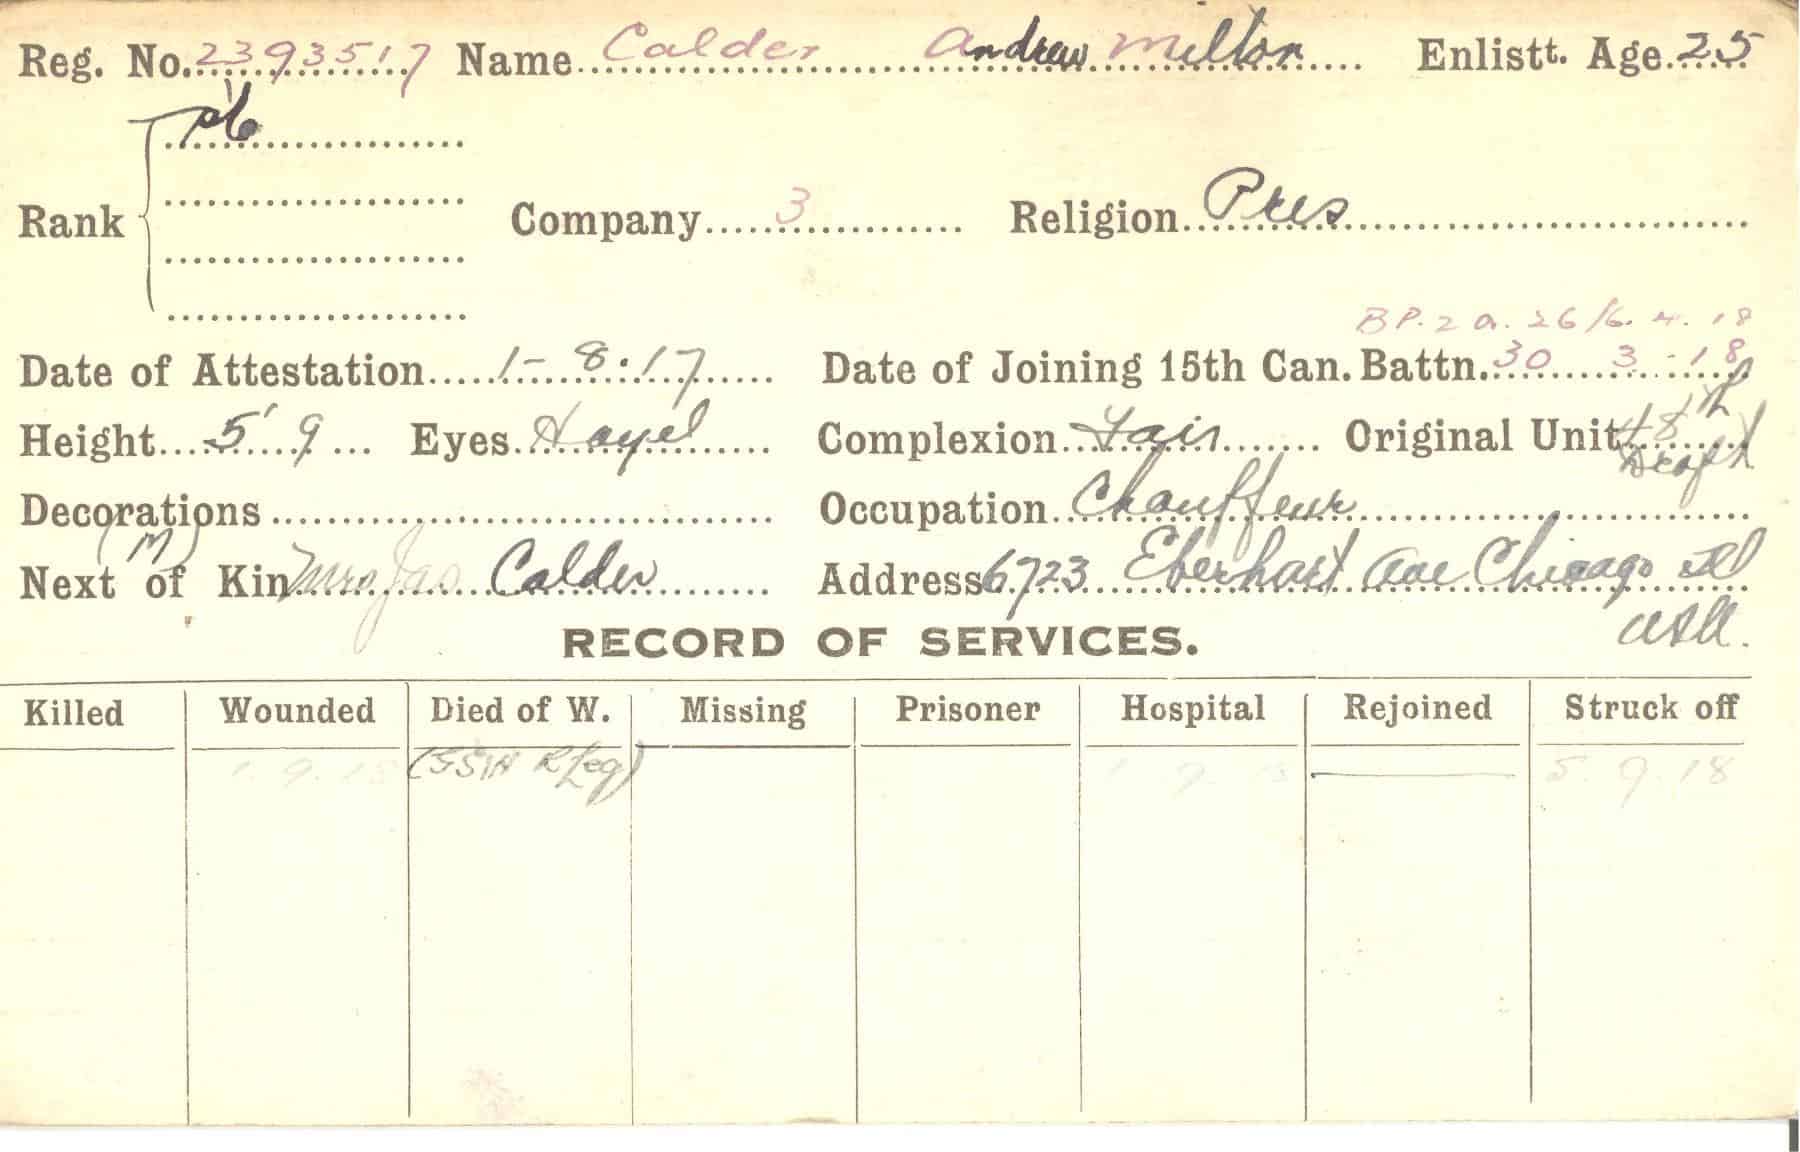 Reg. No. 2393517 Name Calder Andrew Milton Enlistt. Age 25
Rank pte
Company 3 Religion Pres
B P. 2 a. 26/6. 4. 18
Date of Attestation 1-8.17 Date of Joining 15th Can. Battn. 30 3-18
Height 5'9 Eyes Hazel Complexion Fair Original Unit 48th Draft
Decorations Occupation Chauffeur
(M)
Next of Kin Mrs Jas Calder Address 6723 Eberhart Ave Chicago Ill
USA.
RECORD OF SERVICES.
Killed Wounded Died of W. Missing Prisoner Hospital Rejoined Struck off
1.9.18 (GSW R Leg) 1 9 18 — 5.9.18